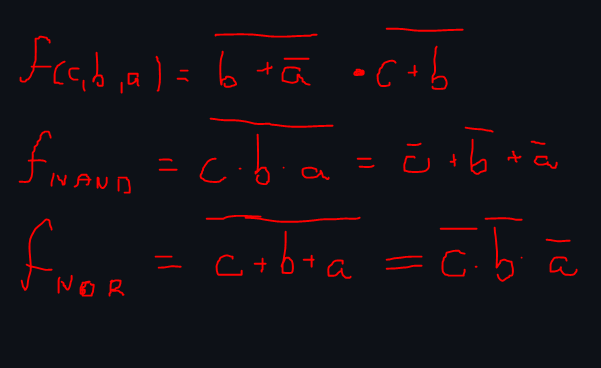 f(c,b,a) = \overline{b + \overline{a}} · \overline{c + b}
f_{NAND} = \overline{c · b · a} = \overline{c} + \overline{b} + \overline{a}
f_{NOR} = \overline{c + b + a} = \overline{c} · \overline{b} · \overline{a}